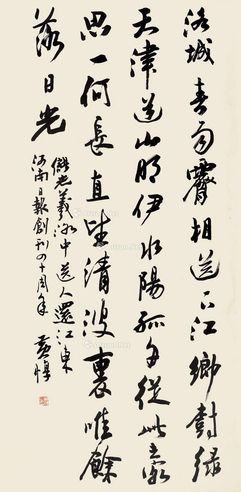 洛城春雨霽相送下江鄉樹緑
天津道山明伊水陽孤舟從此去客
思一何長直望清波裏唯餘
落日光
儲光羲洛中送人還江東
河南日報創刊四十周年 黃惇